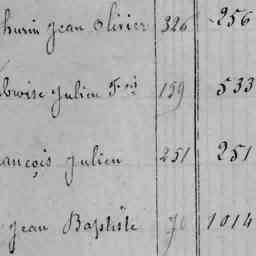 thurin Jean Olivier 326 256
Julien F.ois 159 533
ançois Julien 251 251
Jean Baptiste 1014